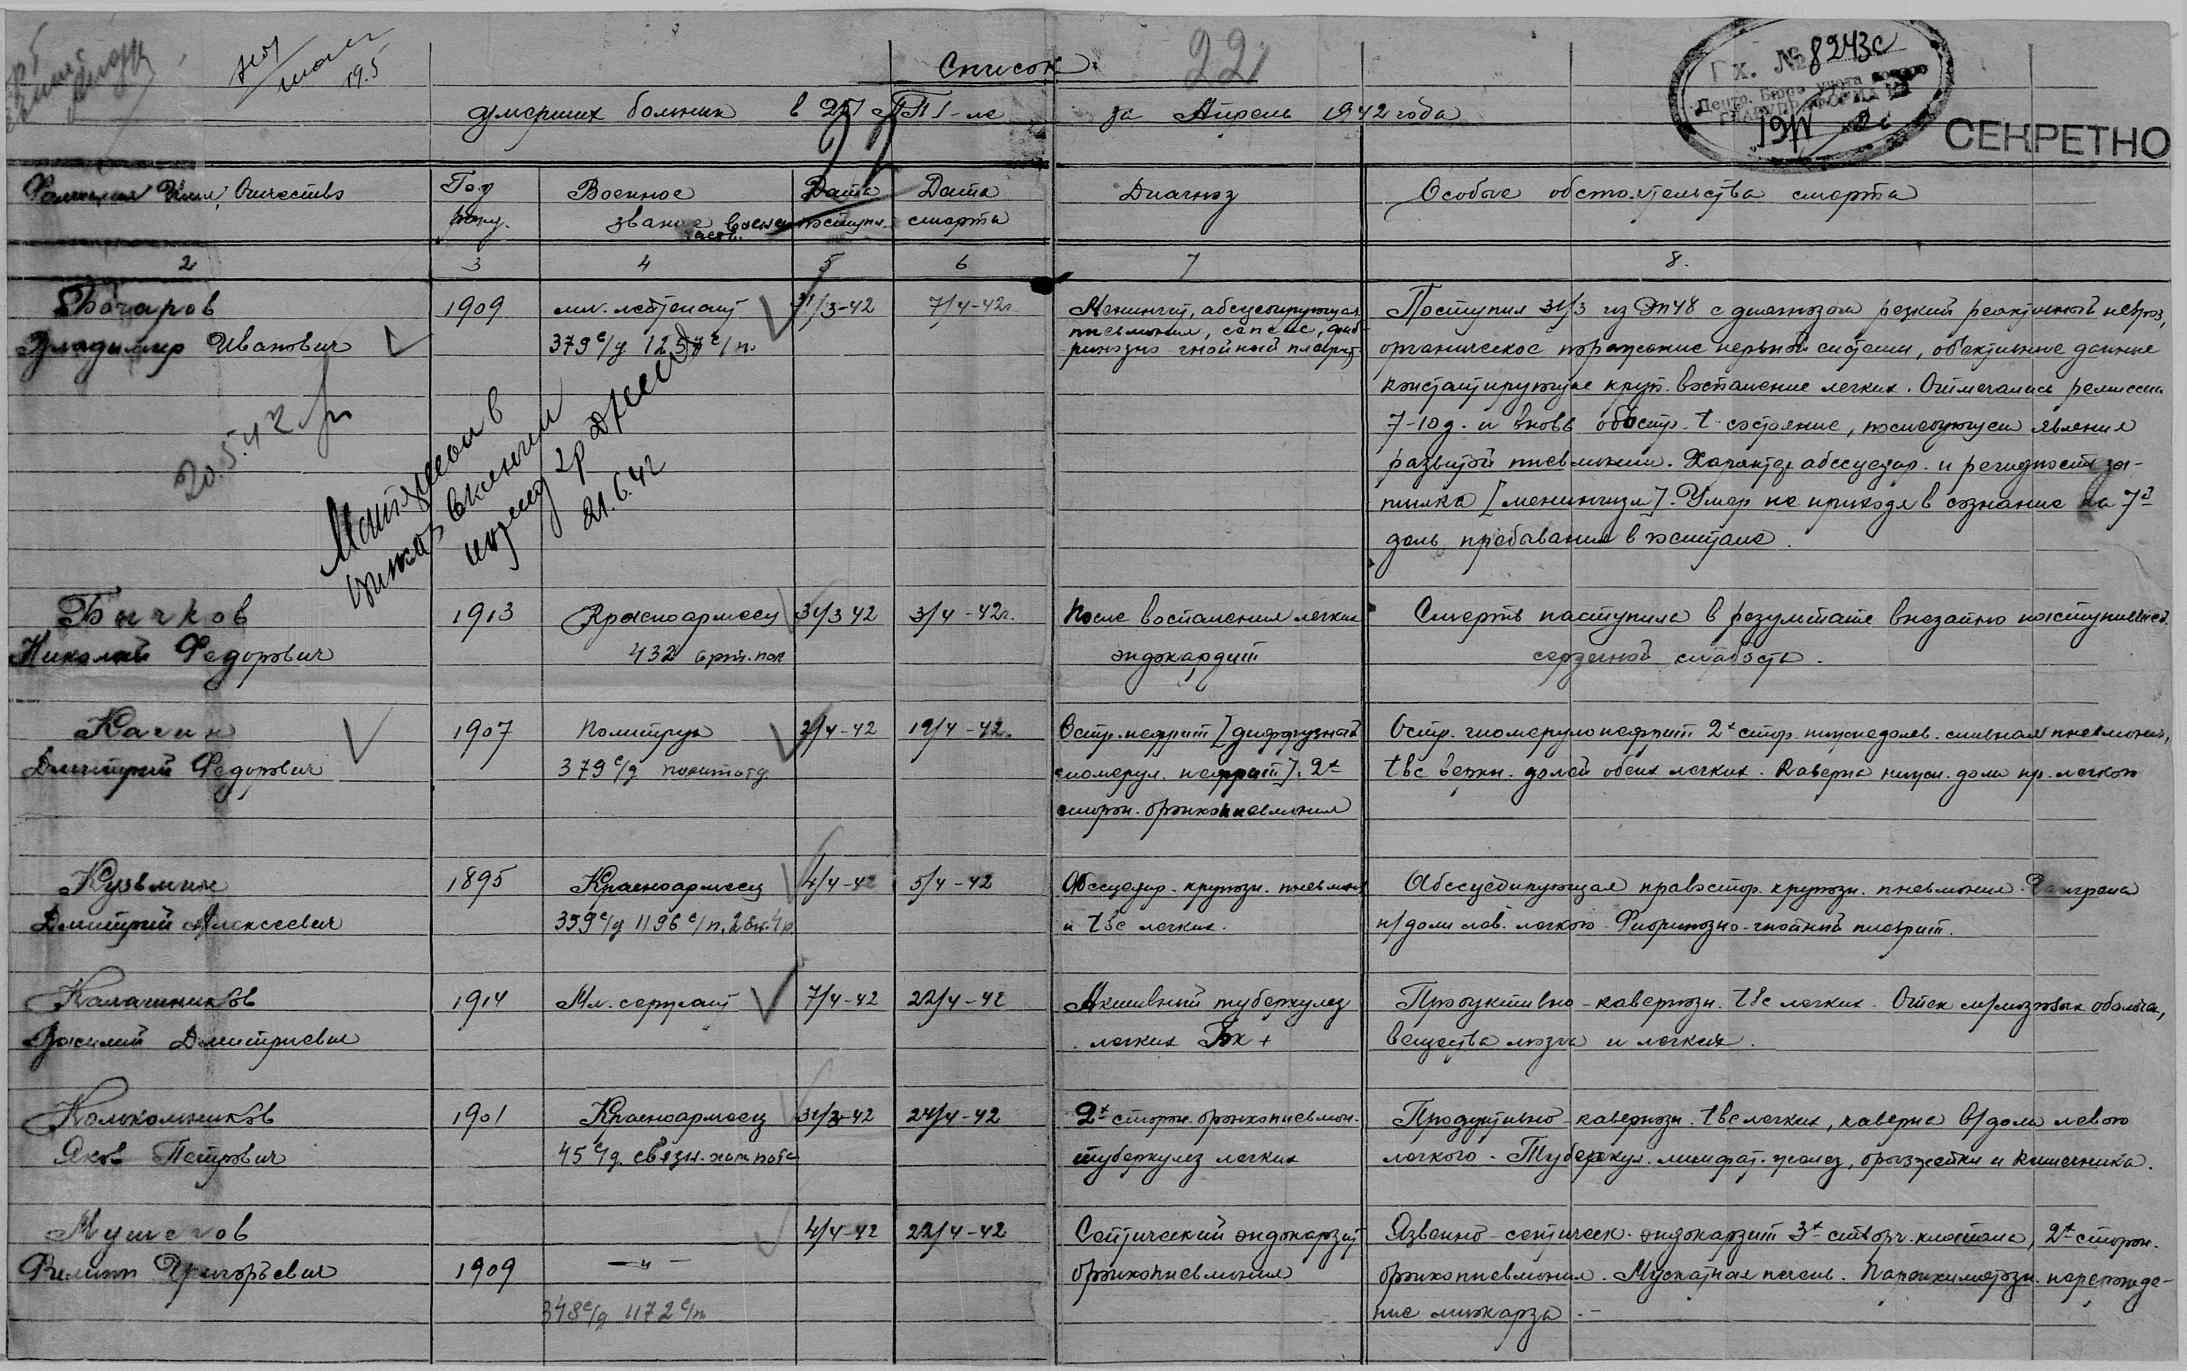 19.5
Список
221
умерших больных в ППГ-ле за Апрель 1942 года
Гх. № 8243с
Центр. Бюро учета
СЕКРЕТНО
Фамилия Имя, Отчество
Год рожд.
Военное звание
Дата поступл.
Дата смерти
Диагноз
Особые обстоятельства смерти
2 3 4 5 6 7 8.
Бочаров 1909 мл. лейтенант 31/3-42 7/4-42г. Менингит, абсцедирующая Поступил 31/3 из ЭП48 с диагнозом резкий реактивный невроз,
Владимир Иванович 379 с/д 1257 с/п. пневмония, сепсис, фиб- органическое поражение нервной системы, объективные данные
ринозно гнойный плеврит
констатирующие круп. воспаление легких. Отмечались ремиссии
7-10 д. и вновь обостр. t состояние, последующем явления
развитой пневмонии. Характер абсцедир. и регидность за-
тылка [менингизм]. Умер не приходя в сознание на 7й
день пребывания в госпитале.
20.5.42
21.6.42
Бычков 1913 Красноармеец 31/3 42 3/4-42г. После воспаления легких Смерть наступила в результате внезапно наступившей
Николай Федорович 432 арт. пол эндокардит сердечной слабости.
Качин 1907 Политрук 2/4-42 19/4-42. Остр. нефрит [диффузный Остр. гломерулонефрит 2х стор. нижнедолев. сливная пневмония,
Дмитрий Федорович 379 с/д политотд. гломерул. нефрит]. 2х tвс верхн. долей обеих легких. Каверна нижн. доли пр. легкого
сторон. бронхопневмония
Кузьмин 1895 Красноармеец 4/4-42 5/4-42 Абсцедир. крупозн. пневмон. Абсцедирующая правостор. крупозн. пневмония. Гангрена
Дмитрий Алексеевич 359 с/д 1196 с/п. 2 бат. 4 р и tвс легких. н/доли лев. легкого. Фибринозно-гнойный плеврит.
Калашников 1914 Мл. сержант 7/4-42 22/4-42 Активный туберкулез Продуктивно-кавернозн. tвс легких. Отек м/мозговых оболоч.,
Василий Дмитриевич легких Бк + вещества мозга и легких.
Колокольников 1901 Красноармеец 31/3-42 24/4-42 2х сторон. бронхопневмон. Продуктивно-кавернозн. tвс легких, каверна в/доли левого
Яков Петрович 45 с/д. связн. туберкулез легких легкого. Туберкул. лимфат. желез, брызжейки и кишечника.
Мушегов 4/4-42 22/4-42 Септический эндокардит Язвенно-септическ. эндокардит 3х створч. клапана, 2х сторон.
Филипп Григорьевич 1909 —"— бронхопневмония бронхопневмония. Мускатная печень. Паренхиматозн. перерожде-
348 с/д 1172 с/п ние миокарда.—